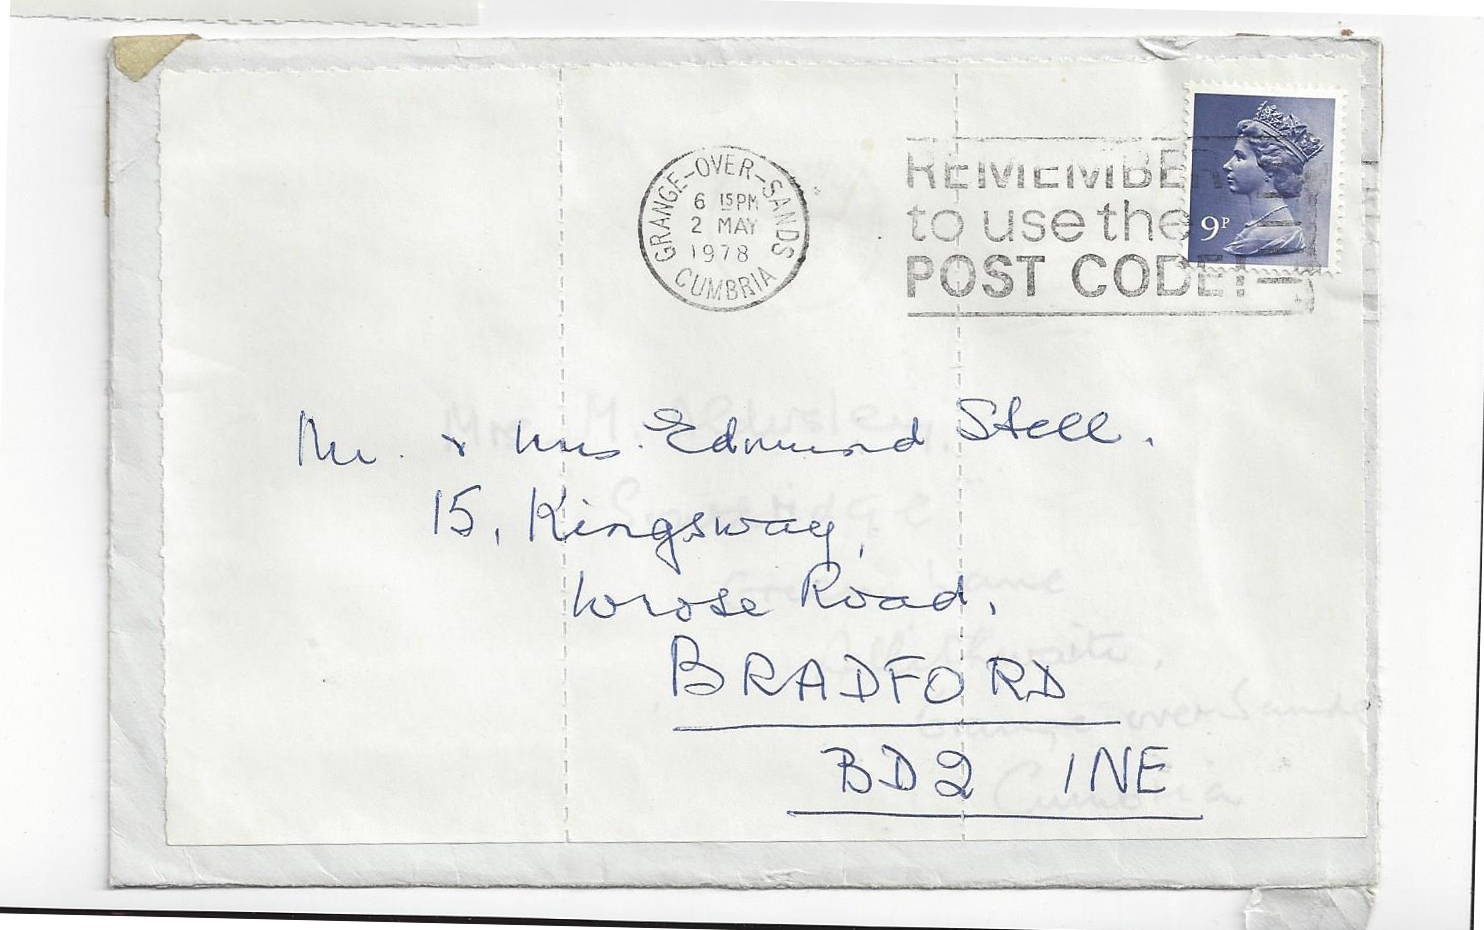 GRANGE-OVER-SANDS
6 15PM
2 MAY
1978
CUMBRIA
REMEMBER
to use the
POST CODE!
9P
Mr. & Mrs. Edmund Stell.
15, Kingsway,
Wrose Road,
BRADFORD
BD2 1NE
Mrs M.
Lane
Allithwaite,
Grange over Sands
Cumbria